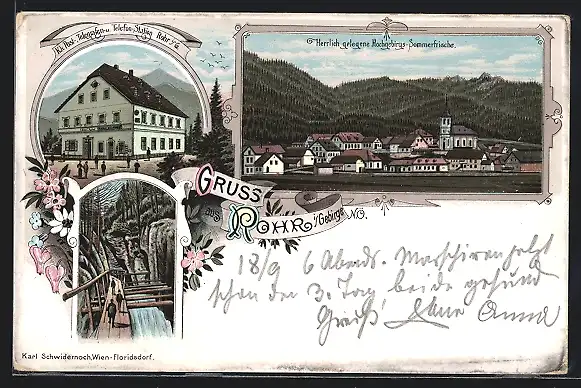 K.k. Post- Telegrafen- u. Telefon-Station Rohr i/G.
Herrlich gelegene Hochgebirgs-Sommerfrische.
GRUSS
aus ROHR i/Gebirge N.Ö.
18/9 6 Abends. Marschiren jetzt
schon den 3. Tag beide gesund
Gruß Anna
Karl Schwidernoch, Wien-Floridsdorf.